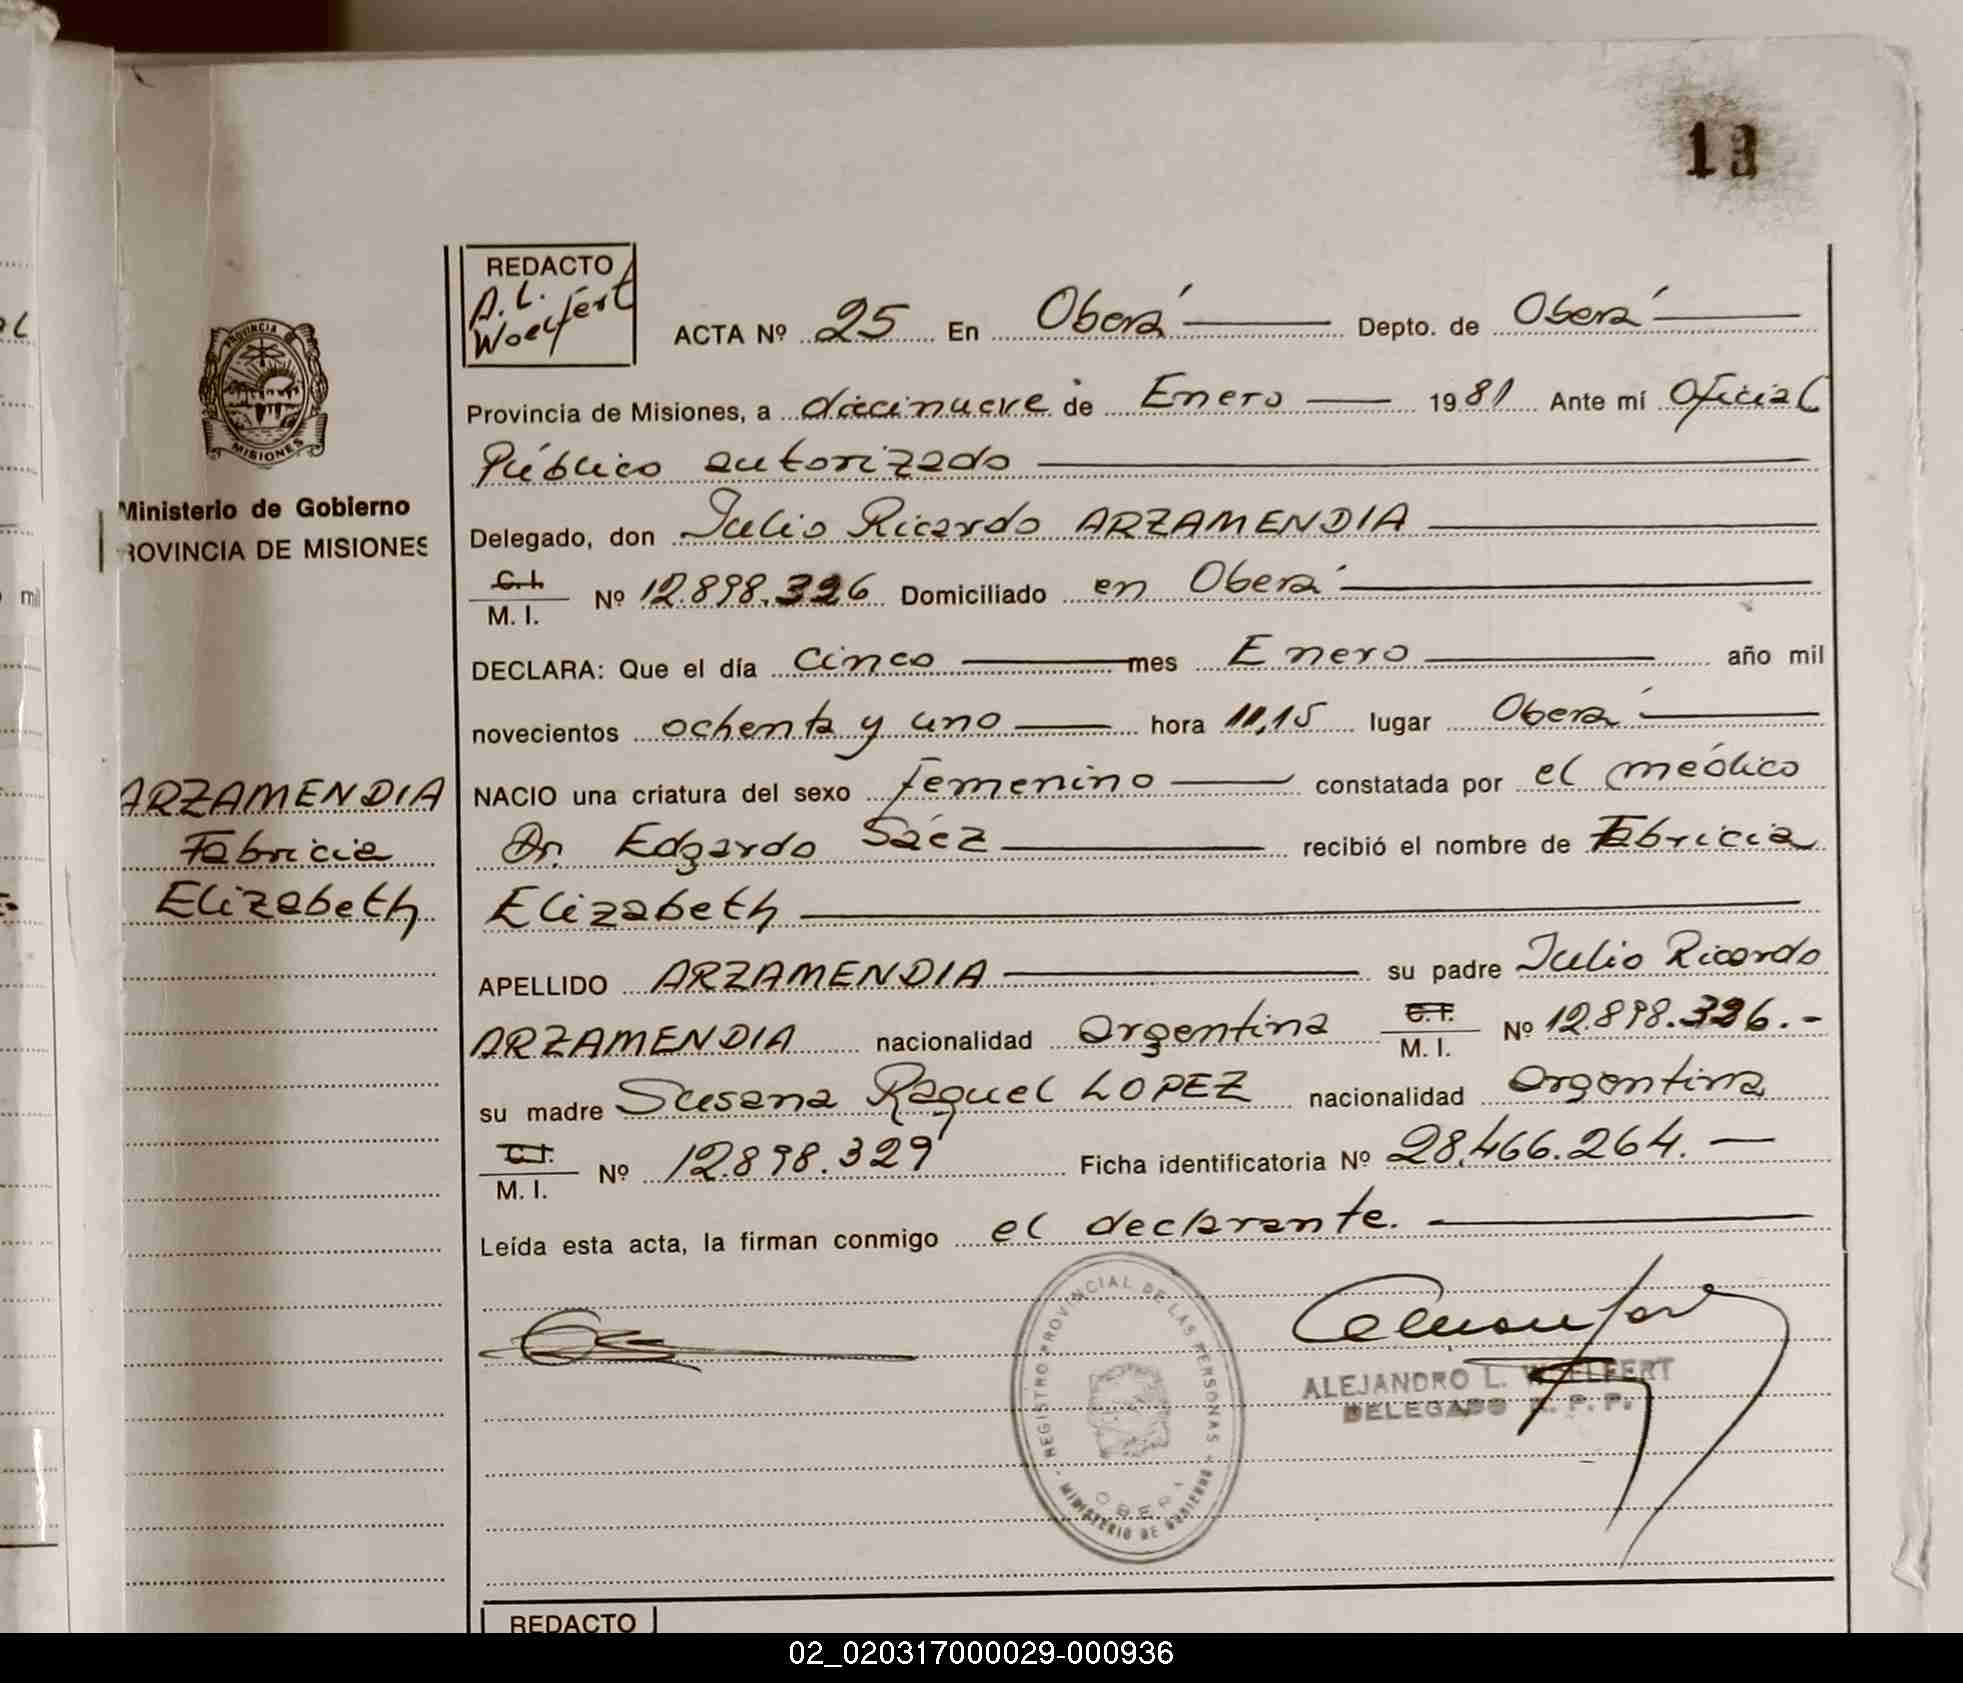 13
REDACTO
A. L.
Woelfert
ACTA Nº 25 En Oberá Depto. de Oberá
Provincia de Misiones, a diecinueve de Enero 1981 Ante mí Oficial
Público autorizado
Delegado, don Julio Ricardo ARZAMENDIA
C. I.
M. I. Nº 12.898.326 Domiciliado en Oberá
DECLARA: Que el día cinco mes Enero año mil
novecientos ochenta y uno hora 11,15 lugar Oberá
NACIO una criatura del sexo femenino constatada por el médico
Dr. Edgardo Sáez recibió el nombre de Fabricia
Elizabeth
APELLIDO ARZAMENDIA su padre Julio Ricardo
ARZAMENDIA nacionalidad argentina C. I. M. I. Nº 12.898.326.-
su madre Susana Raquel LOPEZ nacionalidad argentina
C. I.
M. I. Nº 12.898.329 Ficha identificatoria Nº 28.466.264.—
Leída esta acta, la firman conmigo el declarante.
REGISTRO PROVINCIAL DE LAS PERSONAS
OBERA
MINISTERIO DE GOBIERNO
ALEJANDRO L. WOELFERT
DELEGADO R. P. P.
REDACTO
PROVINCIA
MISIONES
Ministerio de Gobierno
ROVINCIA DE MISIONES
ARZAMENDIA
Fabricia
Elizabeth
mil
02_020317000029-000936